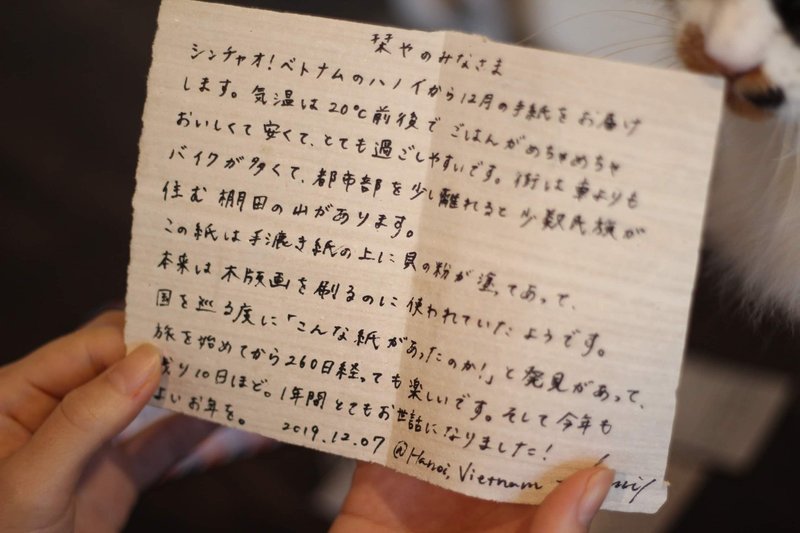 栞やのみなさま
シンチャオ！ベトナムのハノイから12月の手紙をお届け
します。気温は20℃前後でごはんがめちゃめちゃ
おいしくて安くて、とても過ごしやすいです。街は車よりも
バイクが多くて、都市部を少し離れると少数民族が
住む棚田の山があります。
この紙は手漉き紙の上に貝の粉が塗ってあって、
本来は木版画を刷るのに使われていたようです。
国を巡る度に「こんな紙があったのか!」と発見があって、
旅を始めてから260日経っても楽しいです。そして今年も
残り10日ほど。1年間とてもお世話になりました!
よいお年を。 2019.12.07 @Hanoi, Vietnam